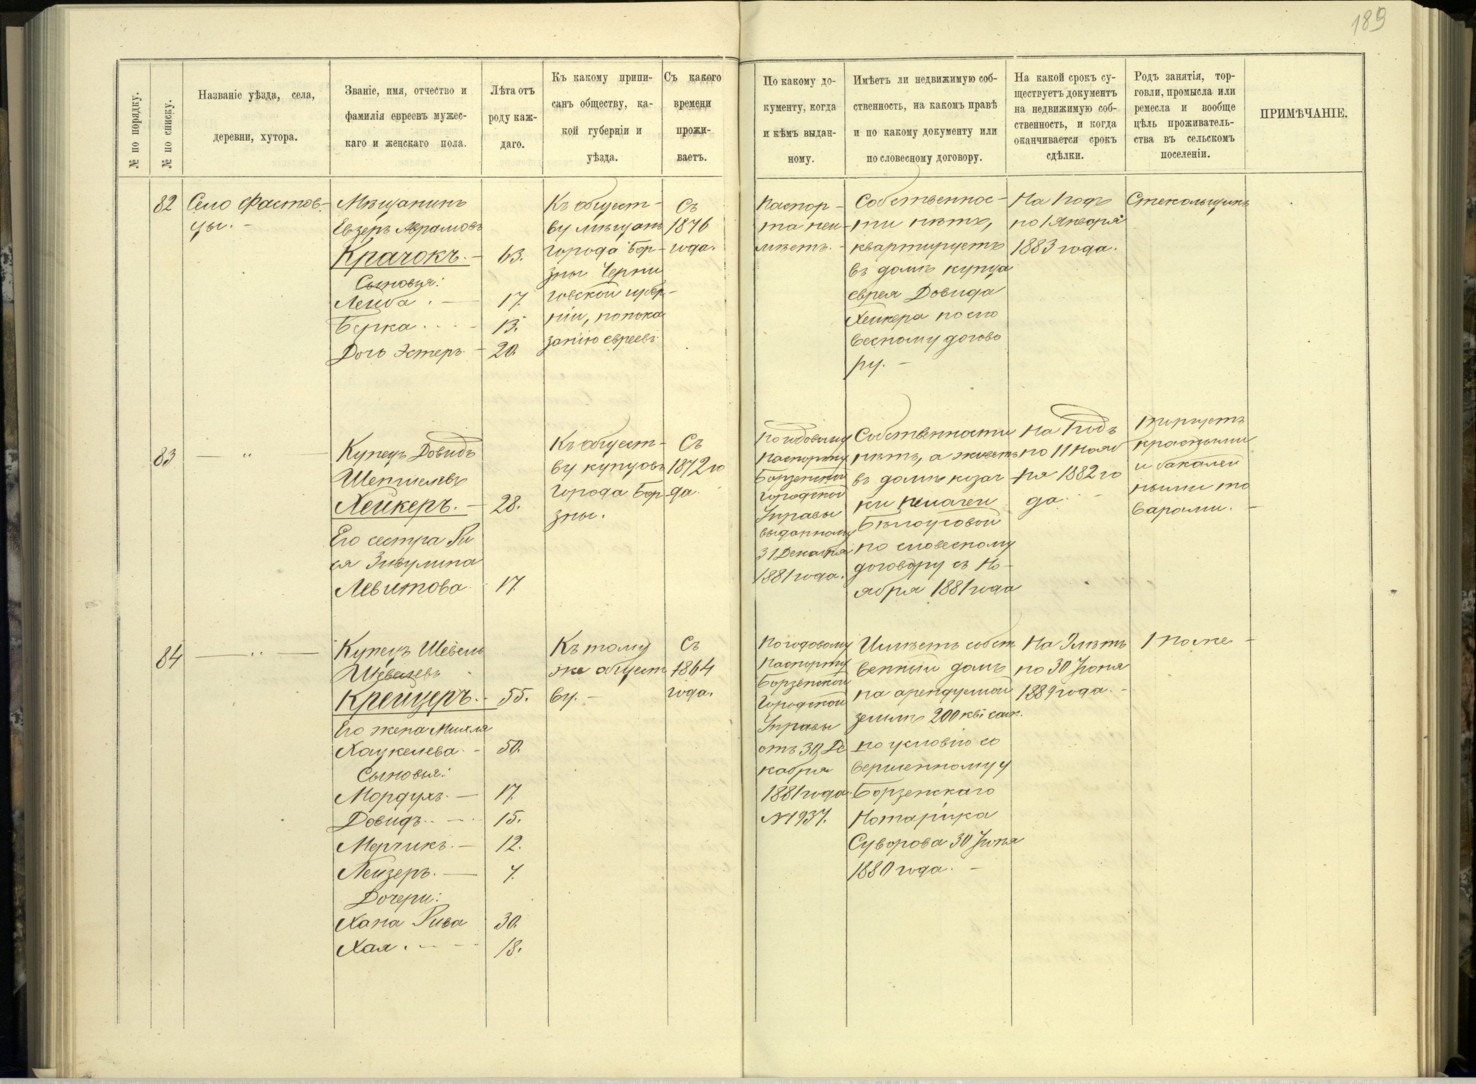 189
№ по порядку.
№ по списку.
Названіе уѣзда, села,
деревни, хутора.
Званіе, имя, отчество и
фамилія евреевъ мужес-
каго и женскаго пола.
Лѣта отъ
роду каж-
даго.
Къ какому припи-
санъ обществу, ка-
кой губерніи и
уѣзда.
Съ какого
времени
прожи-
ваетъ.
По какому до-
кументу, когда
и кѣмъ выдан-
ному.
Имѣетъ ли недвижимую соб-
ственность, на какомъ правѣ
и по какому документу или
по словесному договору.
На какой срокъ су-
ществуетъ документъ
на недвижимую соб-
ственность, и когда
оканчивается срокъ
сдѣлки.
Родъ занятія, тор-
говли, промысла или
ремесла и вообще
цѣль проживатель-
ства въ сельскомъ
поселеніи.
ПРИМѢЧАНІЕ.
82
Село Фастов-
цы. -
Мѣщанинъ
Евзеръ Абрамовъ
Крачокъ. - 63.
Сыновья:
Лейба . - 17.
Берка . . . 13.
Дочь Эстеръ - 20.
Къ общест-
ву мѣщанъ
города Бор-
зны Черни
говской губер-
ніи, по пока
занію евреевъ
Съ
1876
года.
Паспор-
та не и-
мѣетъ. -
Собственнос-
ти нѣтъ,
квартируетъ
въ домѣ купца
еврея Довида
Хейкера по сло
весному догово
ру. -
На годъ
по 1 Января
1883 года.
Стекольщикъ
83
- " -
Купецъ Довидъ
Шепшелевъ
Хейкеръ. - 28.
Его сестра Ри
ся Зивулина
Левитова 17.
Къ общест-
ву купцовъ
города Бор-
зны.
Съ
1872 го
да.
По годовому
паспорту
Борзенской
Городской
Управы
выданному
31 Декабря
1881 года.
Собственности
нѣтъ, а живетъ
въ домѣ козач
ки Пелагеи
Бѣлоусовой
по словесному
договору съ Но-
ября 1881 года
На годъ
по 11 Нояб
ря 1882 го
да.
Торгуетъ
красными
и бакалей
ными то
варами. -
84
- " -
Купецъ Шевель
Шевелевъ
Крейцеръ. - 55.
Его жена Михля
Хацкелева - 50.
Сыновья:
Мордухъ. - 17.
Довидъ. - 15.
Меръикъ - 12.
Лейзеръ. - 7.
Дочери:
Хана Рива 30.
Хая . - - 18.
Къ тому
же общест
ву. -
Съ
1864
года.
По годовому
паспорту
Борзенской
Городской
Управы
отъ 30 Де
кабря
1881 года
№ 1937.
Имѣетъ собст
венный домъ
на арендуемой
землѣ 200 кв: саж.
по условію со
вершенному у
Борзенскаго
Нотаріуса
Суворова 30 Іюня
1880 года. -
На 9 лѣтъ
по 30 Іюня
1889 года. -
Тоже -